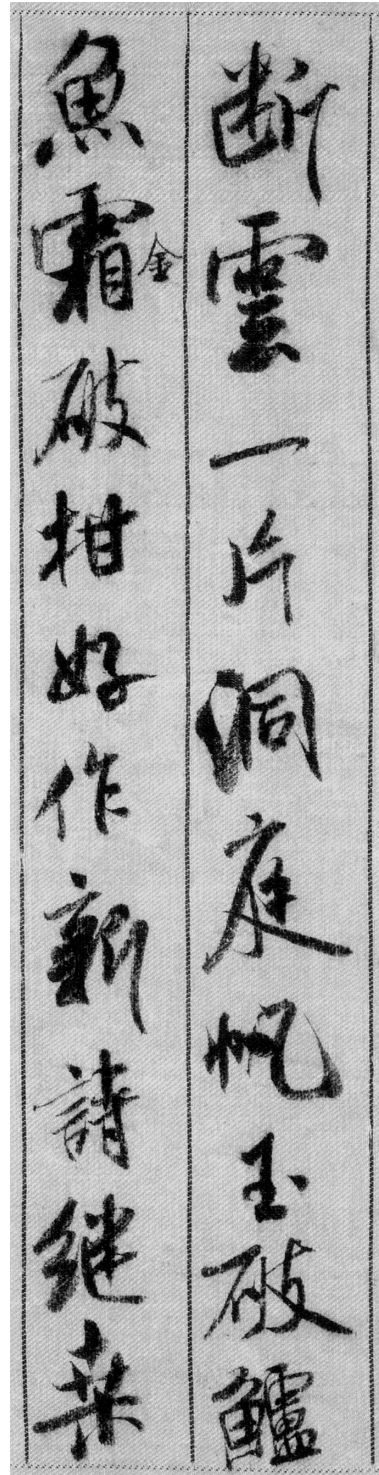 断雲一片洞庭帆玉破鱸
魚霜金破柑好作新詩继桒